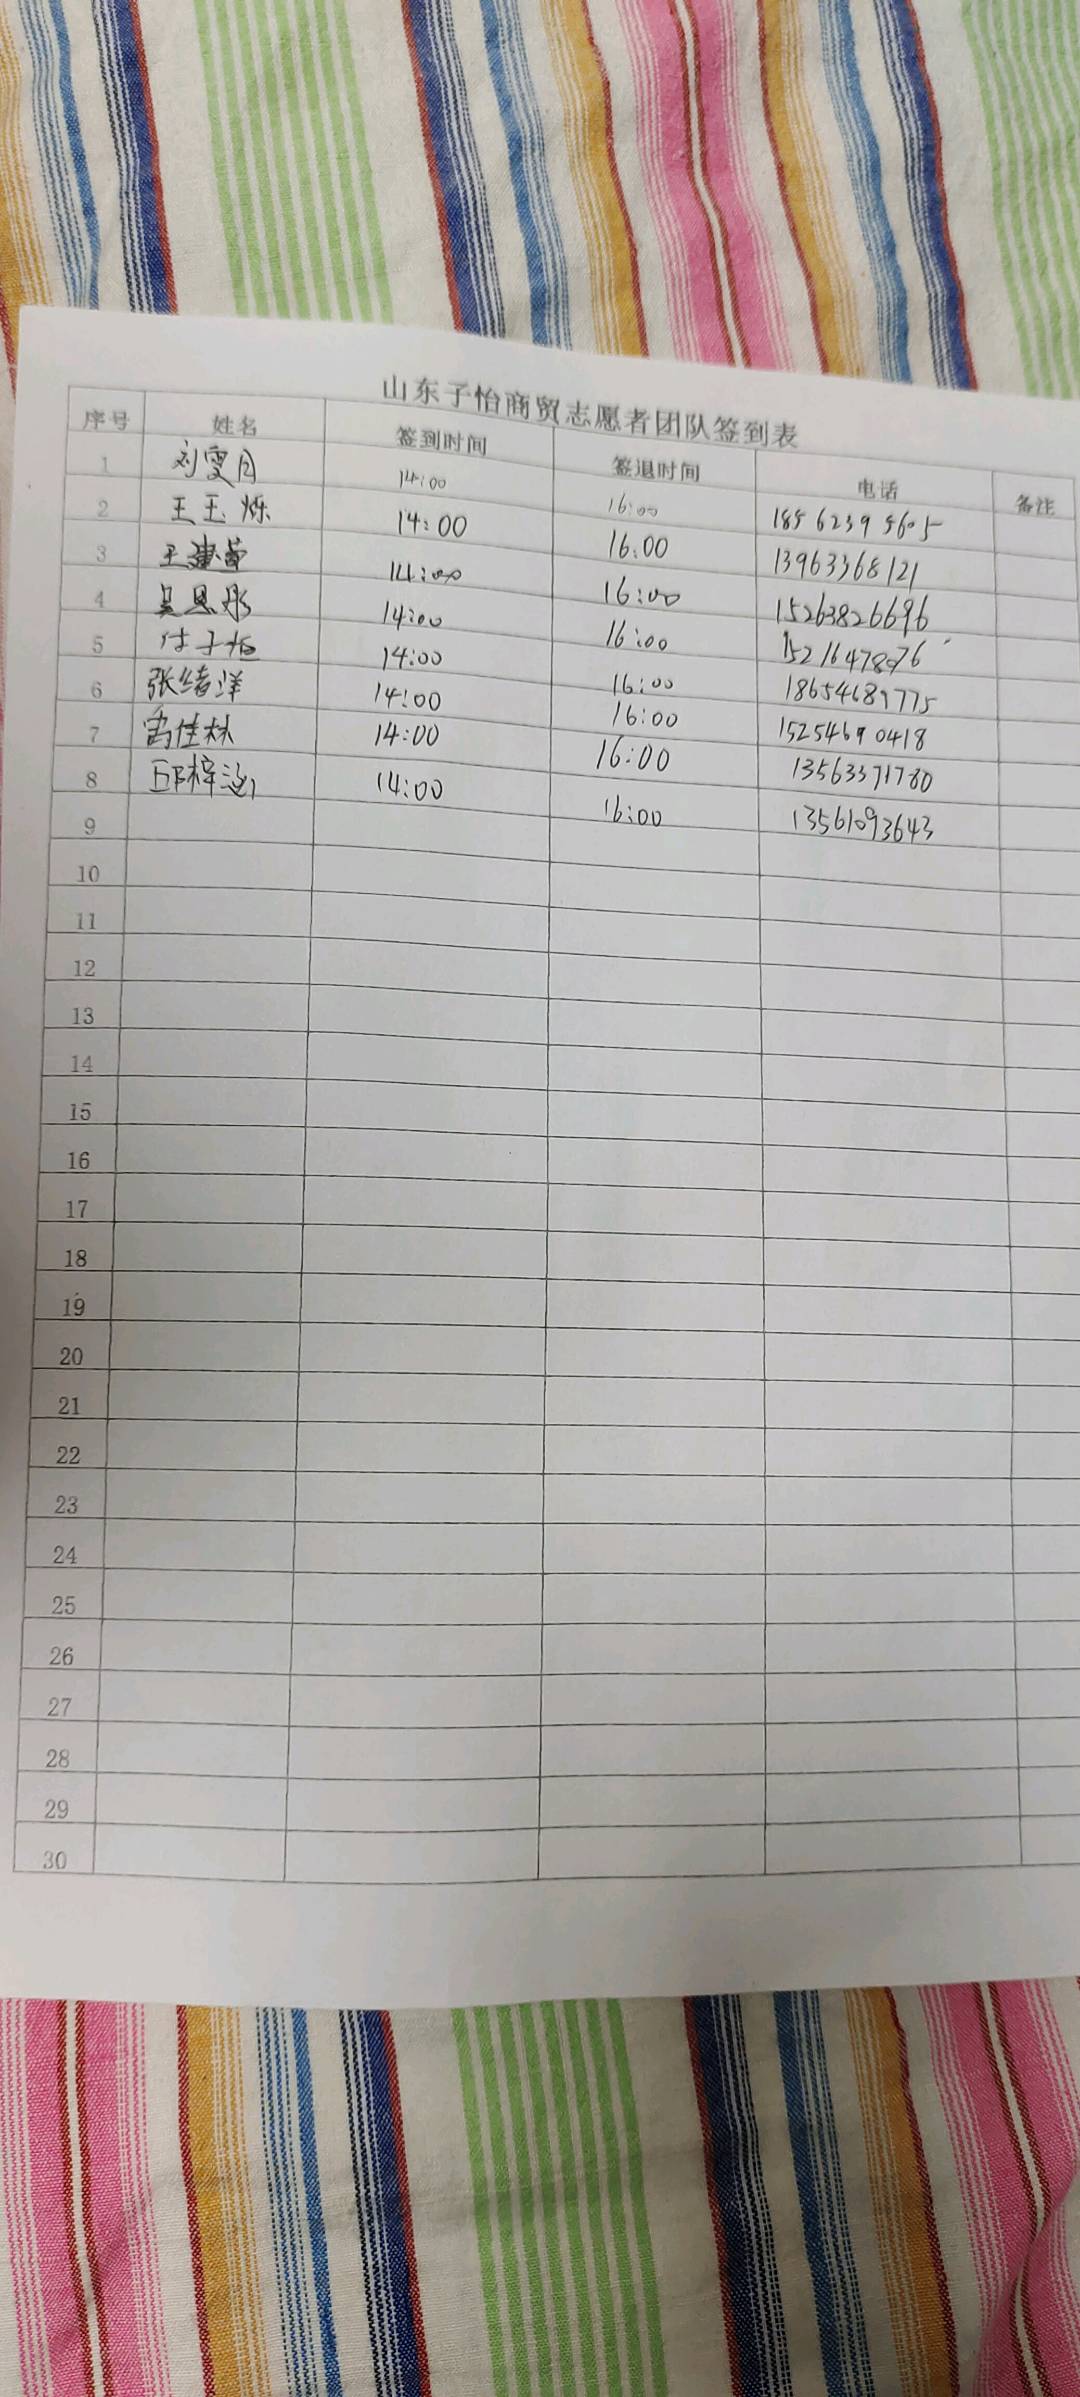 山东子怡商贸志愿者团队签到表
序号 姓名 签到时间 签退时间 电话 备注
1 刘雯月 14:00 16:00 18562395605
2 王玉烁 14:00 16:00 13963368121
3 王建 14:00 16:00 15263826696
4 吴恩彤 14:00 16:00 15216478076
5 付子恒 14:00 16:00 18654689775
6 张绪洋 14:00 16:00 15254690418
7 佳林 14:00 16:00 13563371780
8 邱梓涵 14:00 16:00 13561093643
9
10
11
12
13
14
15
16
17
18
19
20
21
22
23
24
25
26
27
28
29
30